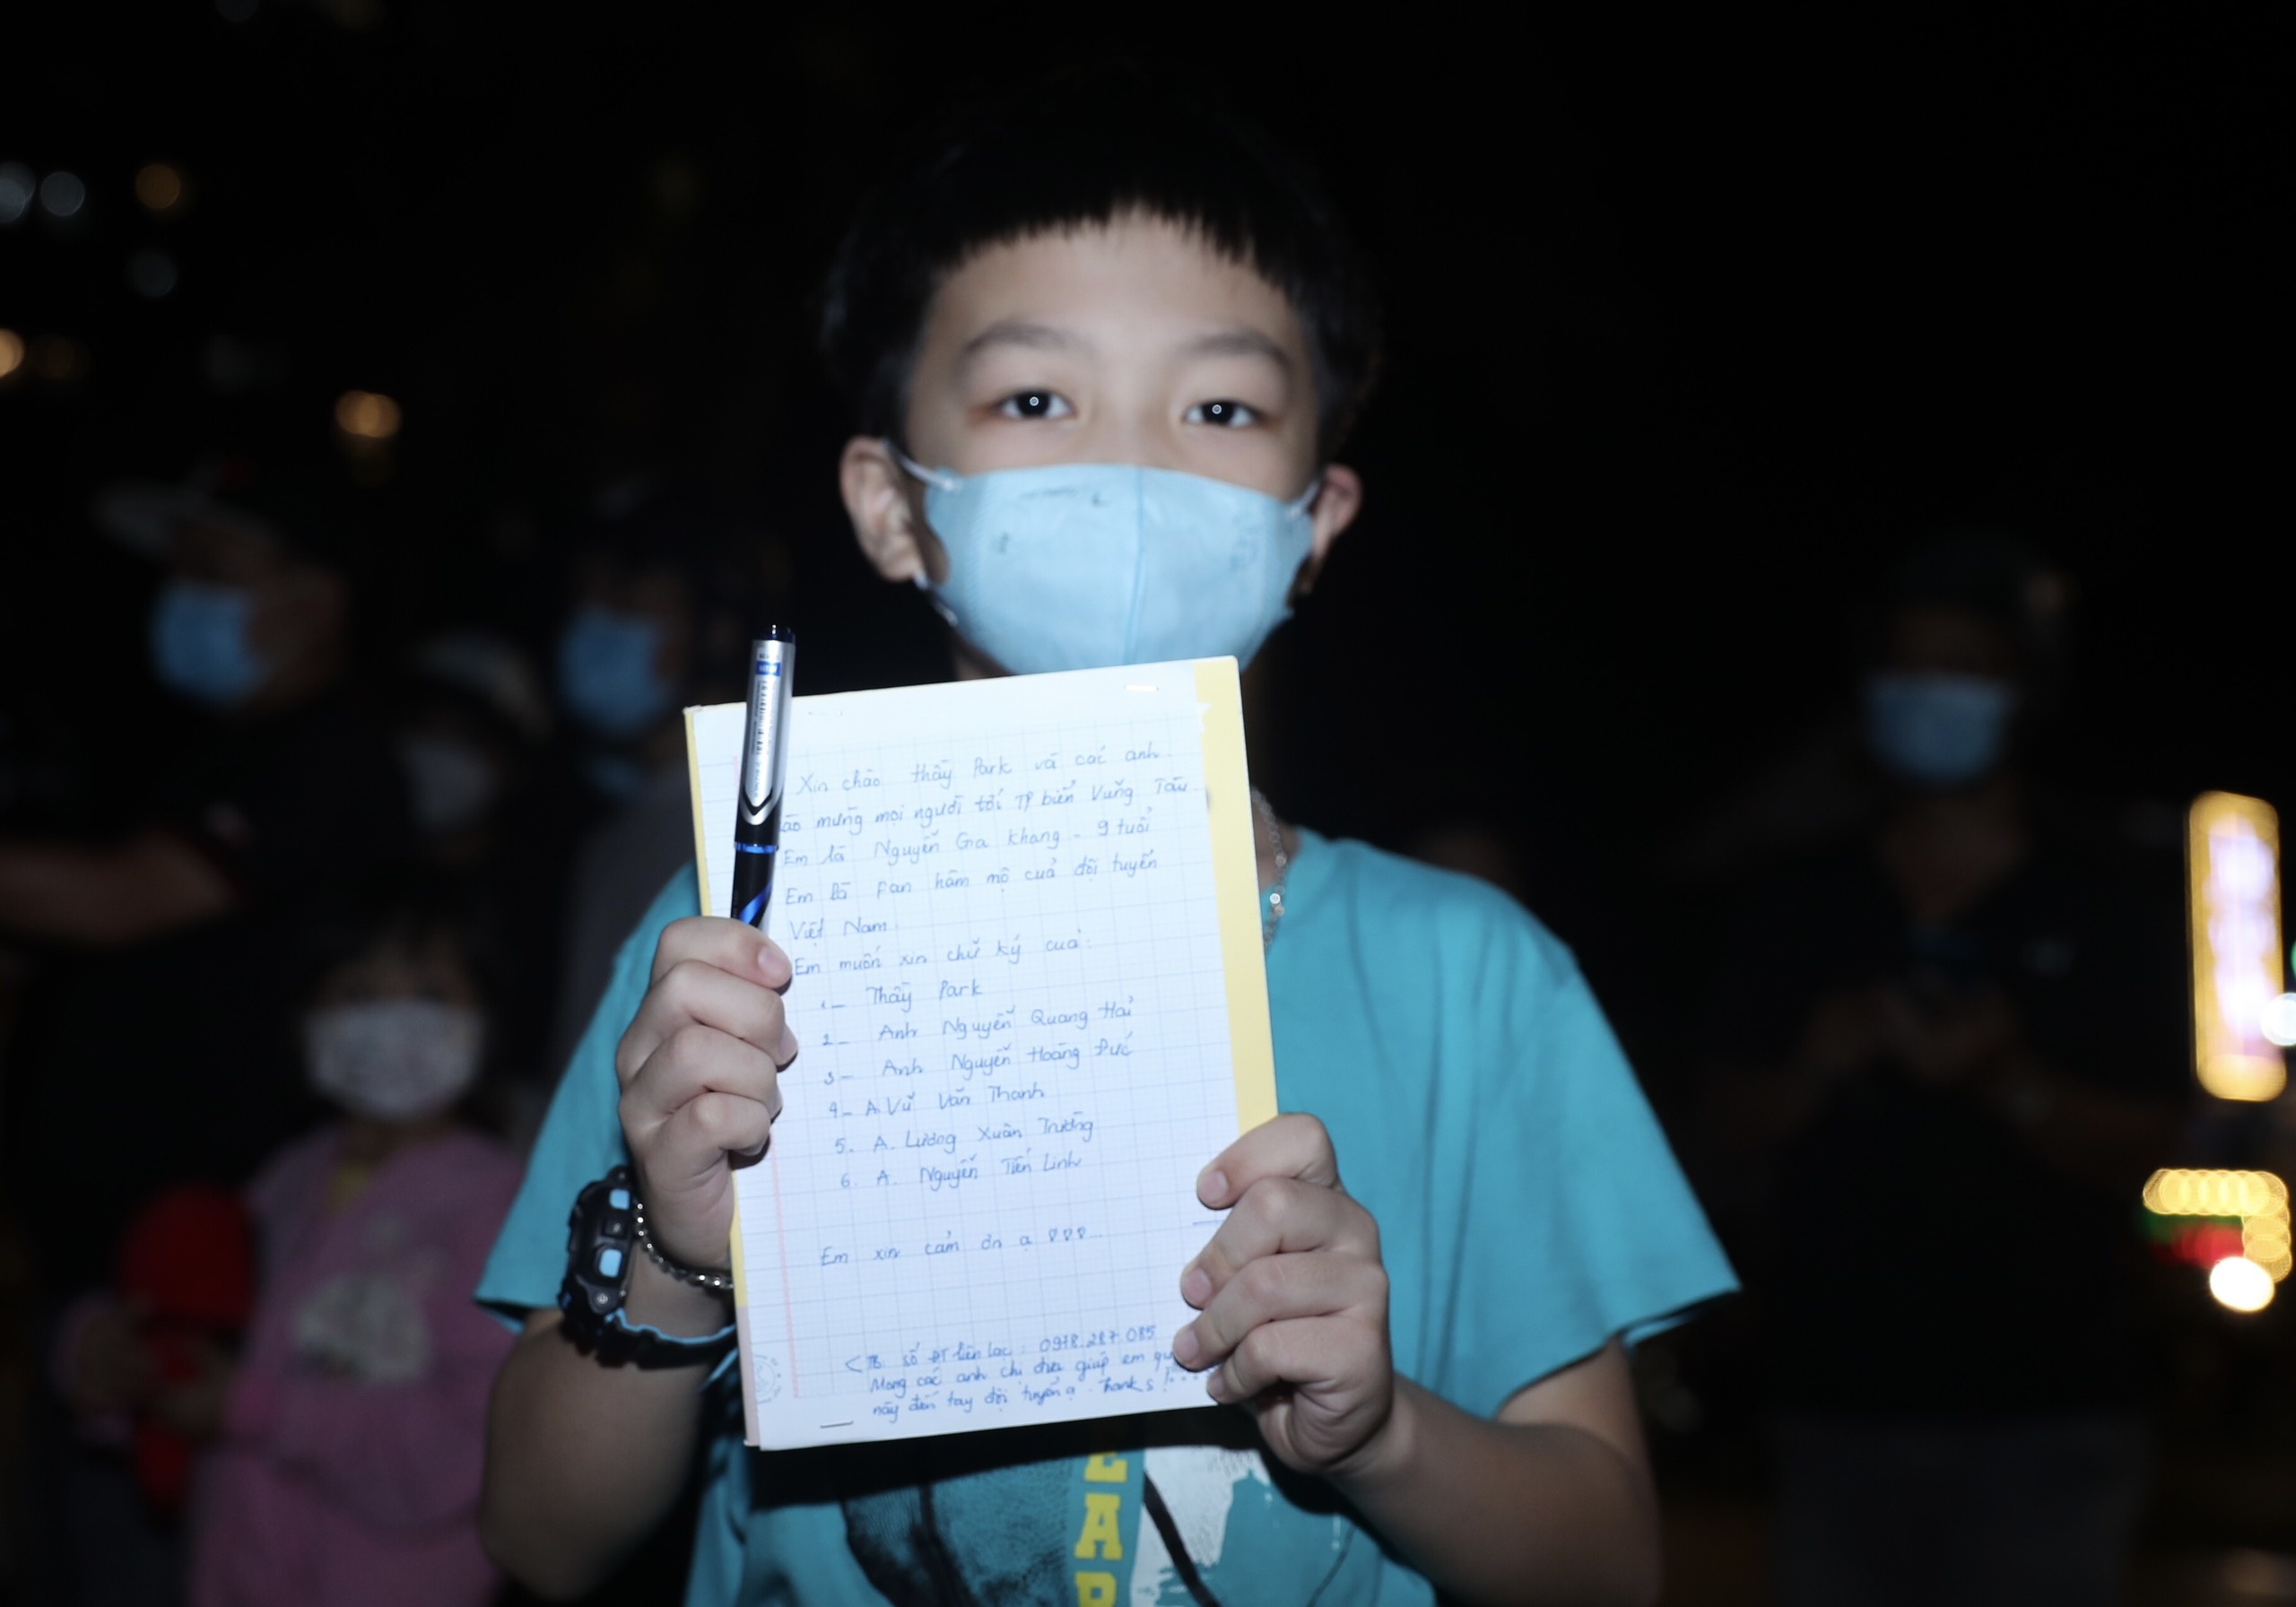 Xin chào thầy Park và các anh
ào mừng mọi người tới TP biển Vũng Tàu
Em là Nguyễn Gia Khang - 9 tuổi
Em là Fan hâm mộ của đội tuyển
Việt Nam
Em muốn xin chữ ký của:
1_ Thầy Park
2_ Anh Nguyễn Quang Hải
3_ Anh Nguyễn Hoàng Đức
4_ A. Vũ Văn Thanh
5. A. Lương Xuân Trường
6. A. Nguyễn Tiến Linh
Em xin cảm ơn ạ
số ĐT liên lạc: 0978.287.085
Mong các anh chị đưa giúp em
này đến tay đội tuyển ạ. Thanks!....
EAR